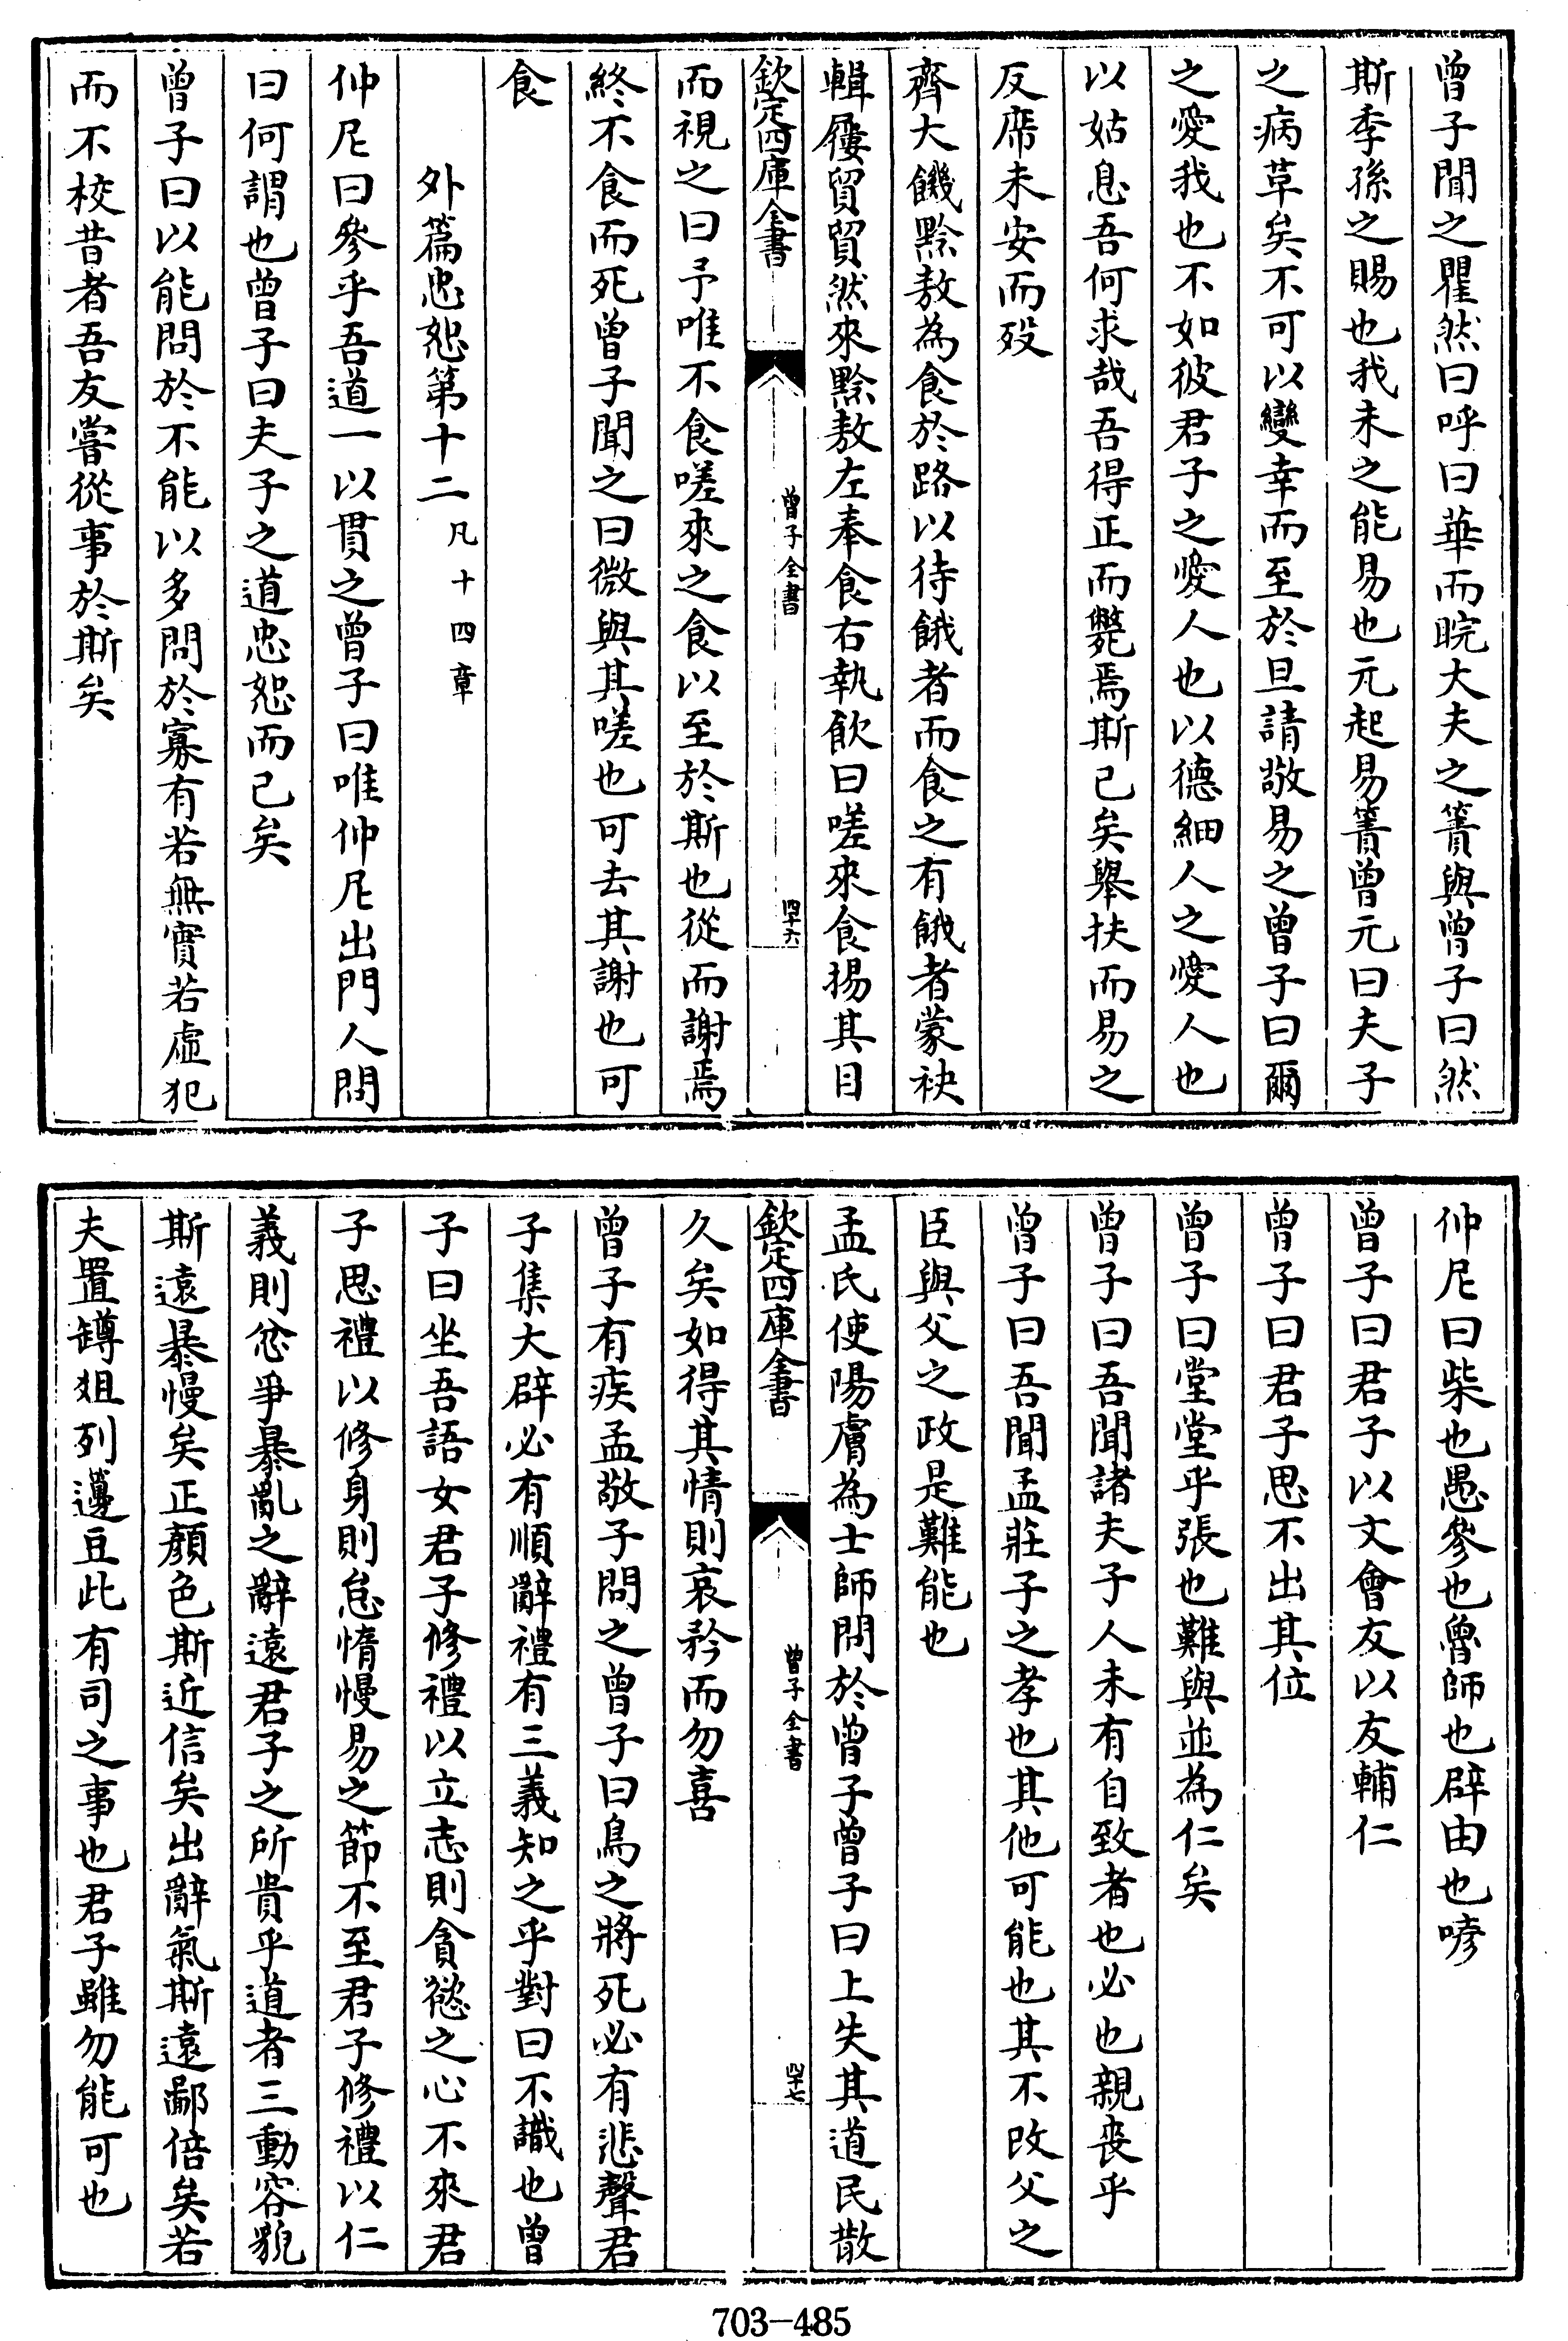 曾子聞之瞿然曰呼曰華而睆大夫之簀與曾子曰然
斯季孫之賜也我未之能易也元起易簀曾元曰夫子
之病革矣不可以變幸而至於旦請敬易之曾子曰爾
之愛我也不如彼君子之愛人也以德細人之愛人也
以姑息吾何求哉吾得正而斃焉斯已矣舉扶而易之
反席未安而歿
齊大饑黔敖為食於路以待餓者而食之有餓者蒙袂
輯屨貿貿然來黔敖左奉食右執飲曰嗟來食揚其目
欽定四庫全書
曾子全書
四十六
而視之曰予唯不食嗟來之食以至於斯也從而謝焉
終不食而死曾子聞之曰微與其嗟也可去其謝也可
食
外篇忠恕第十二凡十四章
仲尼曰參乎吾道一以貫之曾子曰唯仲尼出門人問
曰何謂也曾子曰夫子之道忠恕而已矣
曾子曰以能問於不能以多問於寡有若無實若虛犯
而不校昔者吾友嘗從事於斯矣
仲尼曰柴也愚參也魯師也辟由也喭
曾子曰君子以文會友以友輔仁
曾子曰君子思不出其位
曾子曰堂堂乎張也難與並為仁矣
曾子曰吾聞諸夫子人未有自致者也必也親喪乎
曾子曰吾聞孟莊子之孝也其他可能也其不改父之
臣與父之政是難能也
孟氏使陽膚為士師問於曾子曾子曰上失其道民散
欽定四庫全書
曾子全書
四十七
久矣如得其情則哀矜而勿喜
曾子有疾孟敬子問之曾子曰鳥之將死必有悲聲君
子集大辟必有順辭禮有三義知之乎對曰不識也曾
子曰坐吾語女君子修禮以立志則貪慾之心不來君
子思禮以修身則怠惰慢易之節不至君子修禮以仁
義則忿爭暴亂之辭遠君子之所貴乎道者三動容貌
斯遠暴慢矣正顏色斯近信矣出辭氣斯遠鄙倍矣若
夫置罇俎列籩豆此有司之事也君子雖勿能可也
703-485